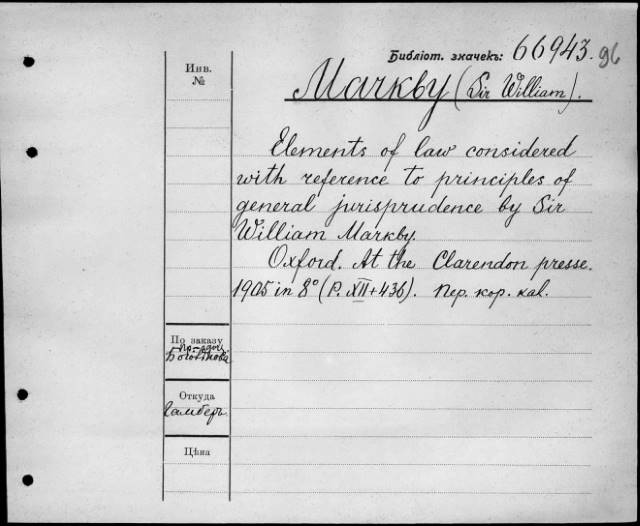 Библіот. значекъ: 66943. 96
Инв.
№
Markby (Sir William).
Elements of law considered
with reference to principles of
general jurisprudence by Sir
William Markby.
Oxford. At the Clarendon presse.
1905 in 8° (P. XII+436). Пер. кор. кал.
По заказу
Откуда
Гамберъ.
Цѣна